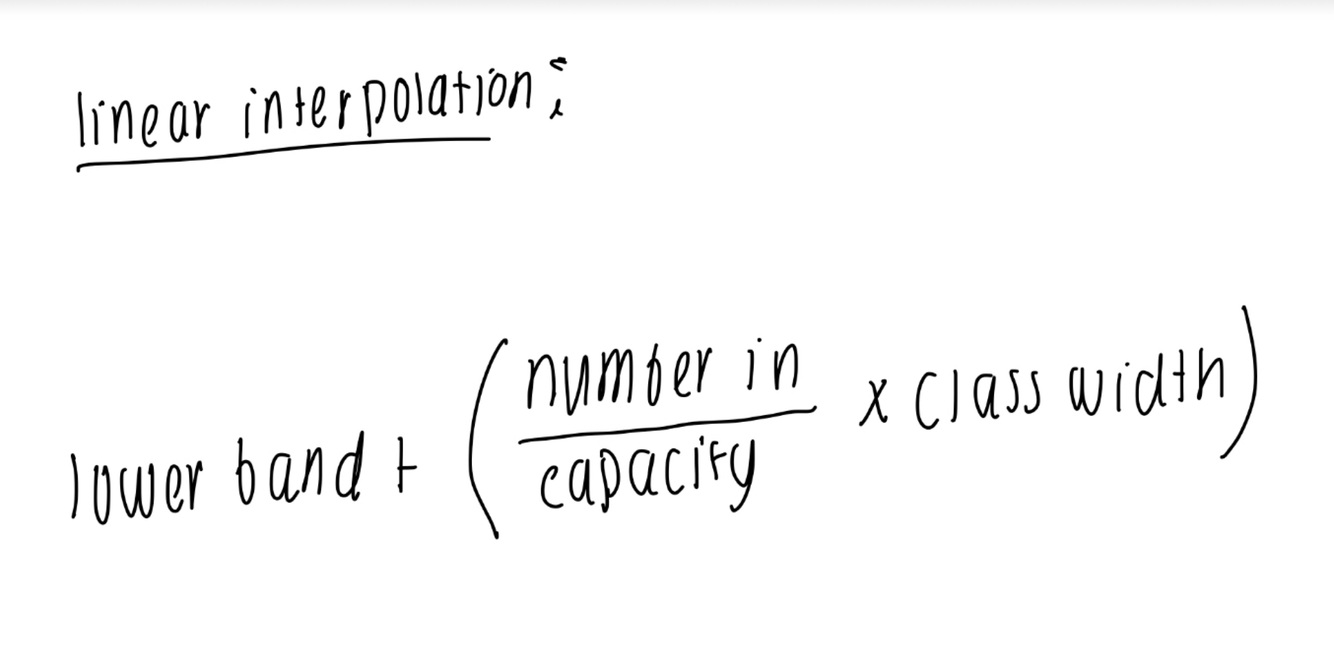 linear interpolation:
lower band + (number in / capacity x class width)